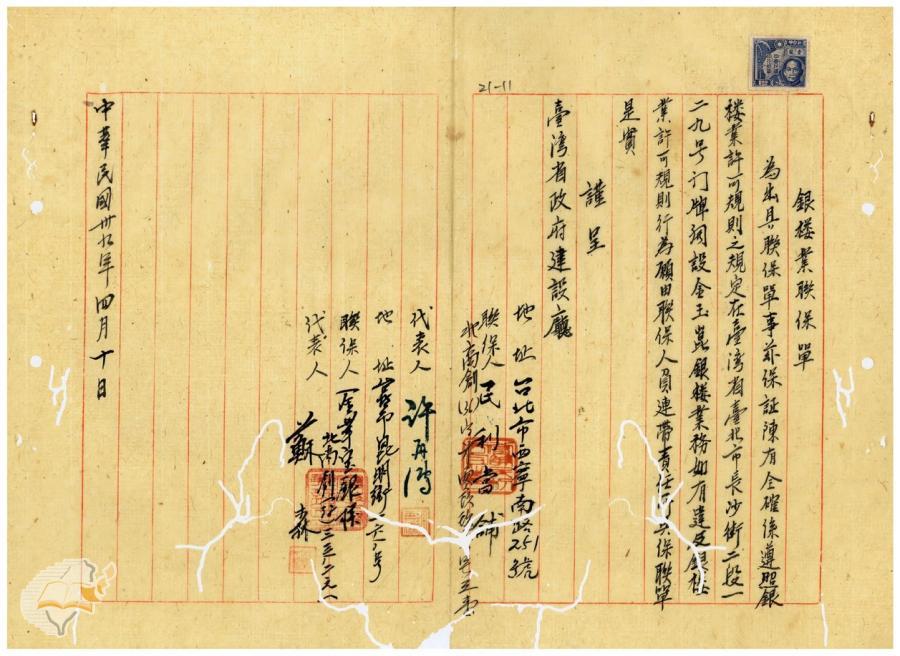 21-11
銀楼業聯保單
為出具聯保單事茲保証陳有全確係遵照銀
楼業許可規則之規定在臺湾省臺北市長沙街二段一
二九号门牌開設金玉崑銀楼業務如有違反銀楼
業許可規則行為願由聯保人負連帶責任所具保聯單
是實
謹呈
臺湾省政府建設廳
地址 台北市西寧南路251號
聯保人 民利當舖
代表人 許再
地址 市昆明街二六八号
聯保人
代表人 蘇 森
中華民國卅九年四月十日